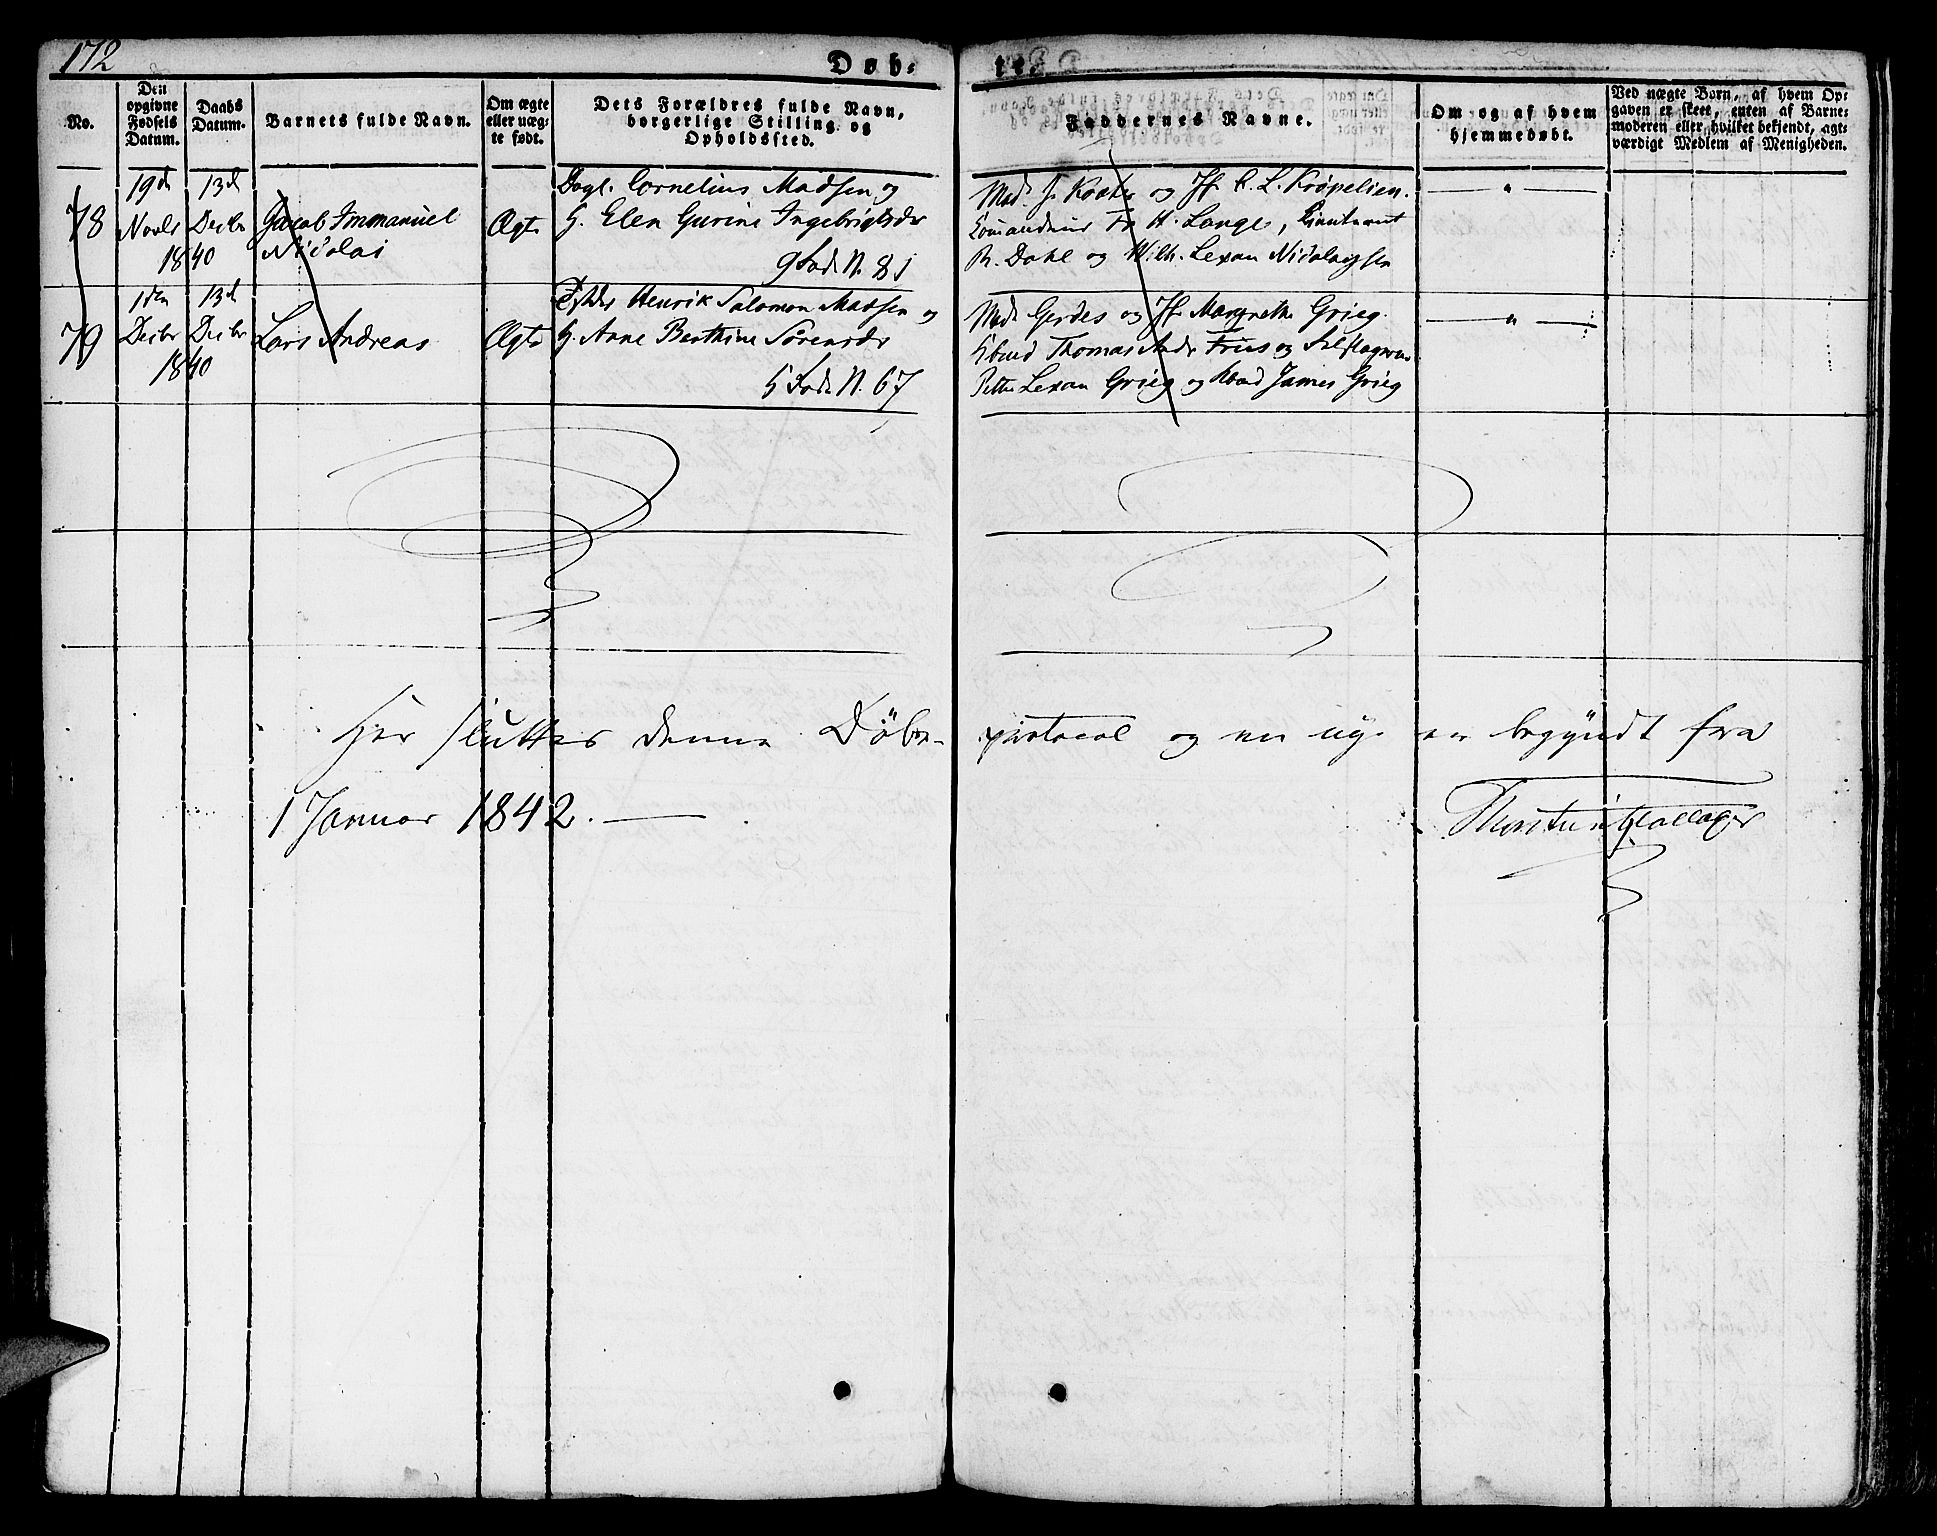 172
Døb-
te.
No.
Den opgivne Fødsels Datum.
Daabs Datum.
Barnets fulde Navn.
Om ægte eller uæg- te født.
Dets Forældres fulde Navn, borgerlige Stilling og Opholdssted.
Faddernes Navne.
Om og af hvem hjemmedøbt.
Ved uægte Børn, af hvem Op- gaven er skeet, enten af Barne- moderen eller, hvilket bekjendt, agt- værdigt Medlem af Menigheden.
78
19d
Novbr
1840
13d
Decbr
Jacob Immanuel
Nicolai
Ægte
Dagl. Cornelius Madsen og
H. Elen Gurine Ingebrigtsdr
9 Rode N. 81
Mad. J. Kooter og Jfr C. L. Krøpelien.
Commandeur Fr. H. Lange, Lieutenant
R. Dahl og Wilh. Lexau Nicolaysen
79
1den
Decbr
1840
13d
Decbr
Lars Andreas
Ægte
Henrik Salomon Madsen og
H. Anne Berthine Sørensdr
5 Rode N. 67
Mad. Gerdes og Jfr Margrethe Grieg.
Thomas Andr Friis og
Petter Lexau Grieg og James Grieg
Her sluttes denne Døbe-
protocol og en ny er begyndt fra
1 Januar 1842.